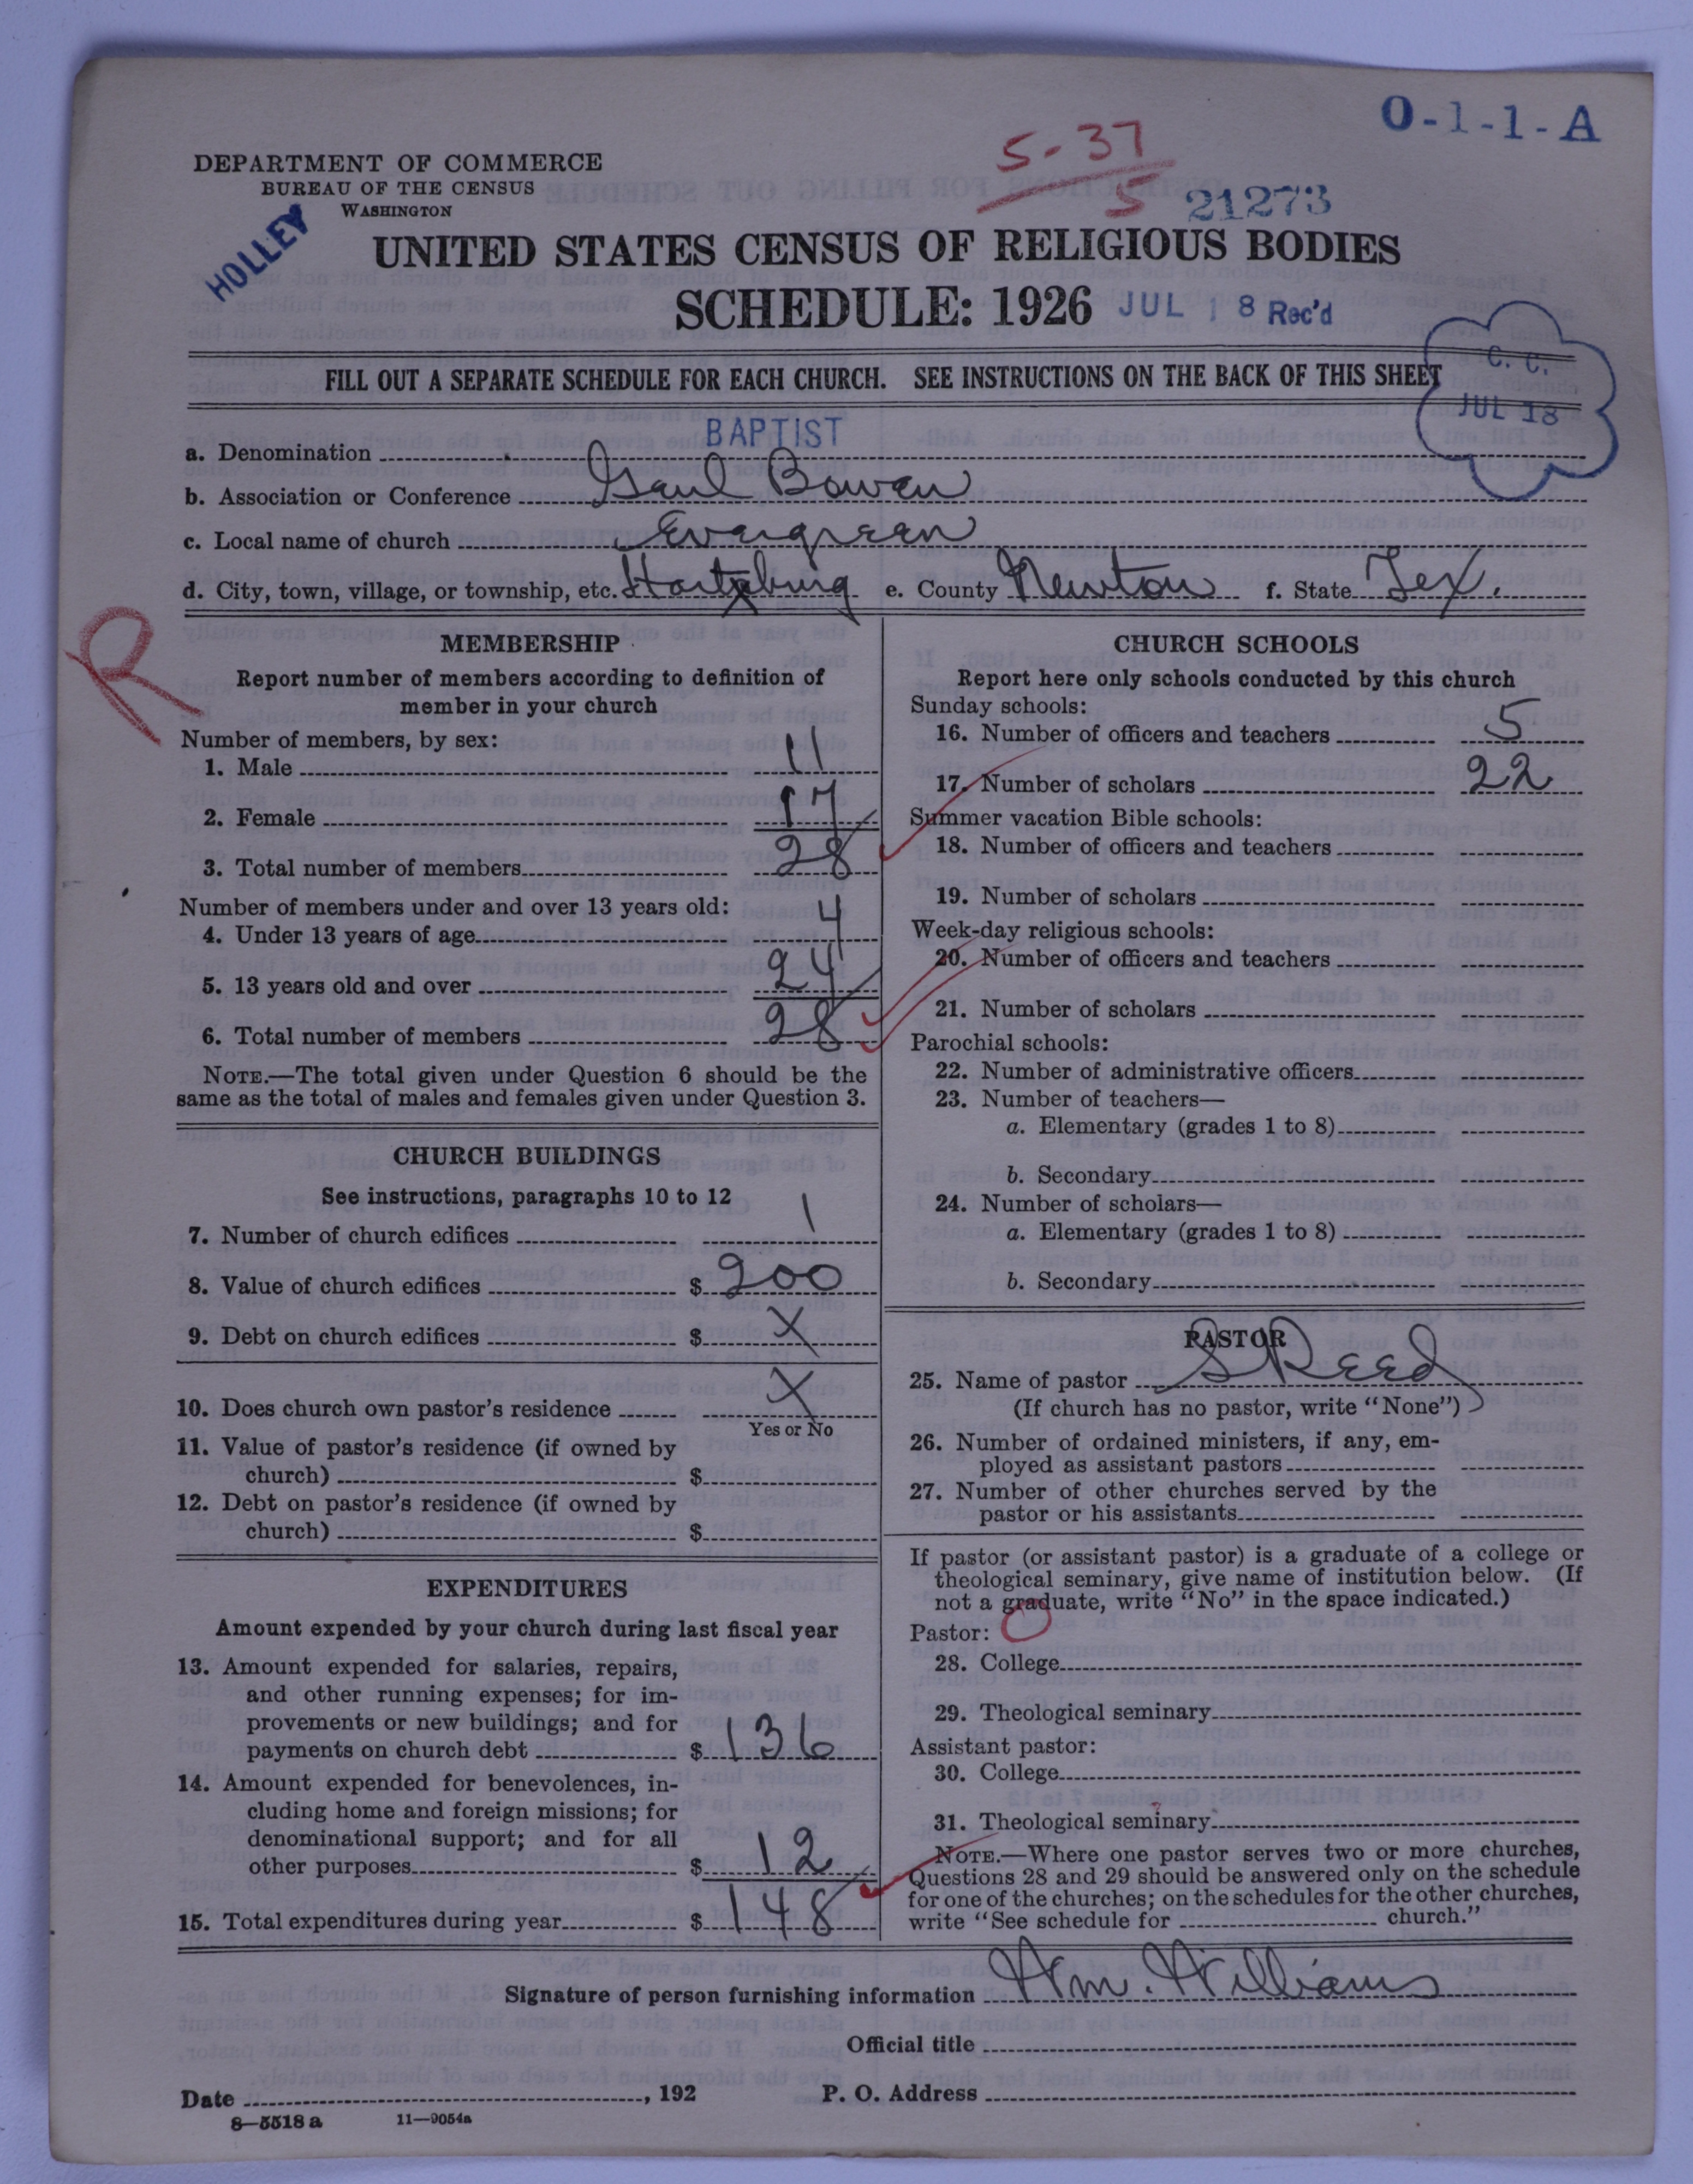 O-1-1-A
5-37
5
DEPARTMENT OF COMMERCE
BUREAU OF THE CENSUS
WASHINGTON
21273
HOLLEY
UNITED STATES CENSUS OF RELIGIOUS BODIES
SCHEDULE: 1926 JUL 18 Rec'd
FILL OUT A SEPARATE SCHEDULE FOR EACH CHURCH. SEE INSTRUCTIONS ON THE BACK OF THIS SHEET
C. C.
JUL 18
a. Denomination BAPTIST
b. Association or Conference Bowen
c. Local name of church Evergreen
d. City, town, village, or township, etc. Hartzburg e. County Newton f. State Tex.
R
MEMBERSHIP
Report number of members according to definition of
member in your church
Number of members, by sex:
1. Male 11
2. Female 17
3. Total number of members 28
Number of members under and over 13 years old:
4. Under 13 years of age 4
5. 13 years old and over 24
6. Total number of members 28
NOTE.—The total given under Question 6 should be the
same as the total of males and females given under Question 3.
CHURCH BUILDINGS
See instructions, paragraphs 10 to 12
7. Number of church edifices 1
8. Value of church edifices $ 200
9. Debt on church edifices $ X
10. Does church own pastor's residence X
Yes or No
11. Value of pastor's residence (if owned by
church) $
12. Debt on pastor's residence (if owned by
church) $
EXPENDITURES
Amount expended by your church during last fiscal year
13. Amount expended for salaries, repairs,
and other running expenses; for im-
provements or new buildings; and for
payments on church debt $ 136
14. Amount expended for benevolences, in-
cluding home and foreign missions; for
denominational support; and for all
other purposes $ 12
15. Total expenditures during year $ 148
CHURCH SCHOOLS
Report here only schools conducted by this church
Sunday schools:
16. Number of officers and teachers 5
17. Number of scholars 22
Summer vacation Bible schools:
18. Number of officers and teachers
19. Number of scholars
Week-day religious schools:
20. Number of officers and teachers
21. Number of scholars
Parochial schools:
22. Number of administrative officers
23. Number of teachers—
a. Elementary (grades 1 to 8)
b. Secondary
24. Number of scholars—
a. Elementary (grades 1 to 8)
b. Secondary
PASTOR
25. Name of pastor S Reed
(If church has no pastor, write "None")
26. Number of ordained ministers, if any, em-
ployed as assistant pastors
27. Number of other churches served by the
pastor or his assistants
If pastor (or assistant pastor) is a graduate of a college or
theological seminary, give name of institution below. (If
not a graduate, write "No" in the space indicated.)
Pastor:
28. College
29. Theological seminary
Assistant pastor:
30. College
31. Theological seminary
NOTE.—Where one pastor serves two or more churches,
Questions 28 and 29 should be answered only on the schedule
for one of the churches; on the schedules for the other churches,
write "See schedule for church."
Signature of person furnishing information Wm. Williams
Official title
Date , 192 P. O. Address
8—5518 a 11—9054a